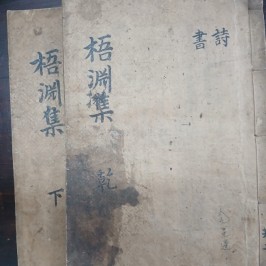 詩
書
梧淵集
乾
梧淵集
下